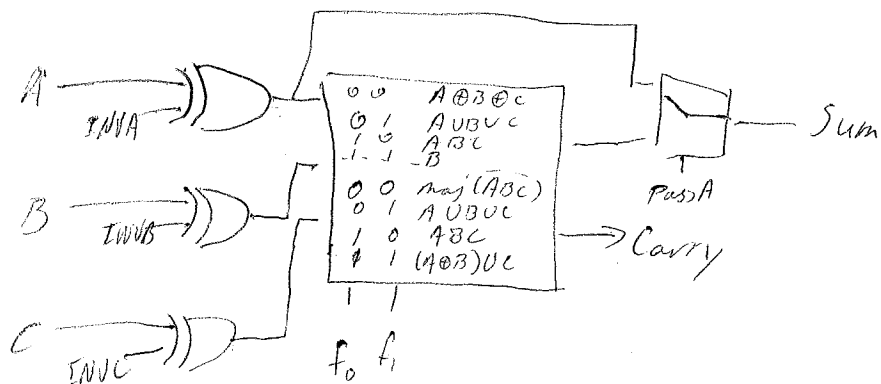 A
INVA
B
INVB
C
INVC
0 0 A⊕B⊕C
0 1 A∪B∪C
1 0 ABC
1 1 B
0 0 maj(ABC)
0 1 A∪B∪C
1 0 ABC
1 1 (A⊕B)∪C
f₀ f₁
PassA
Sum
Carry